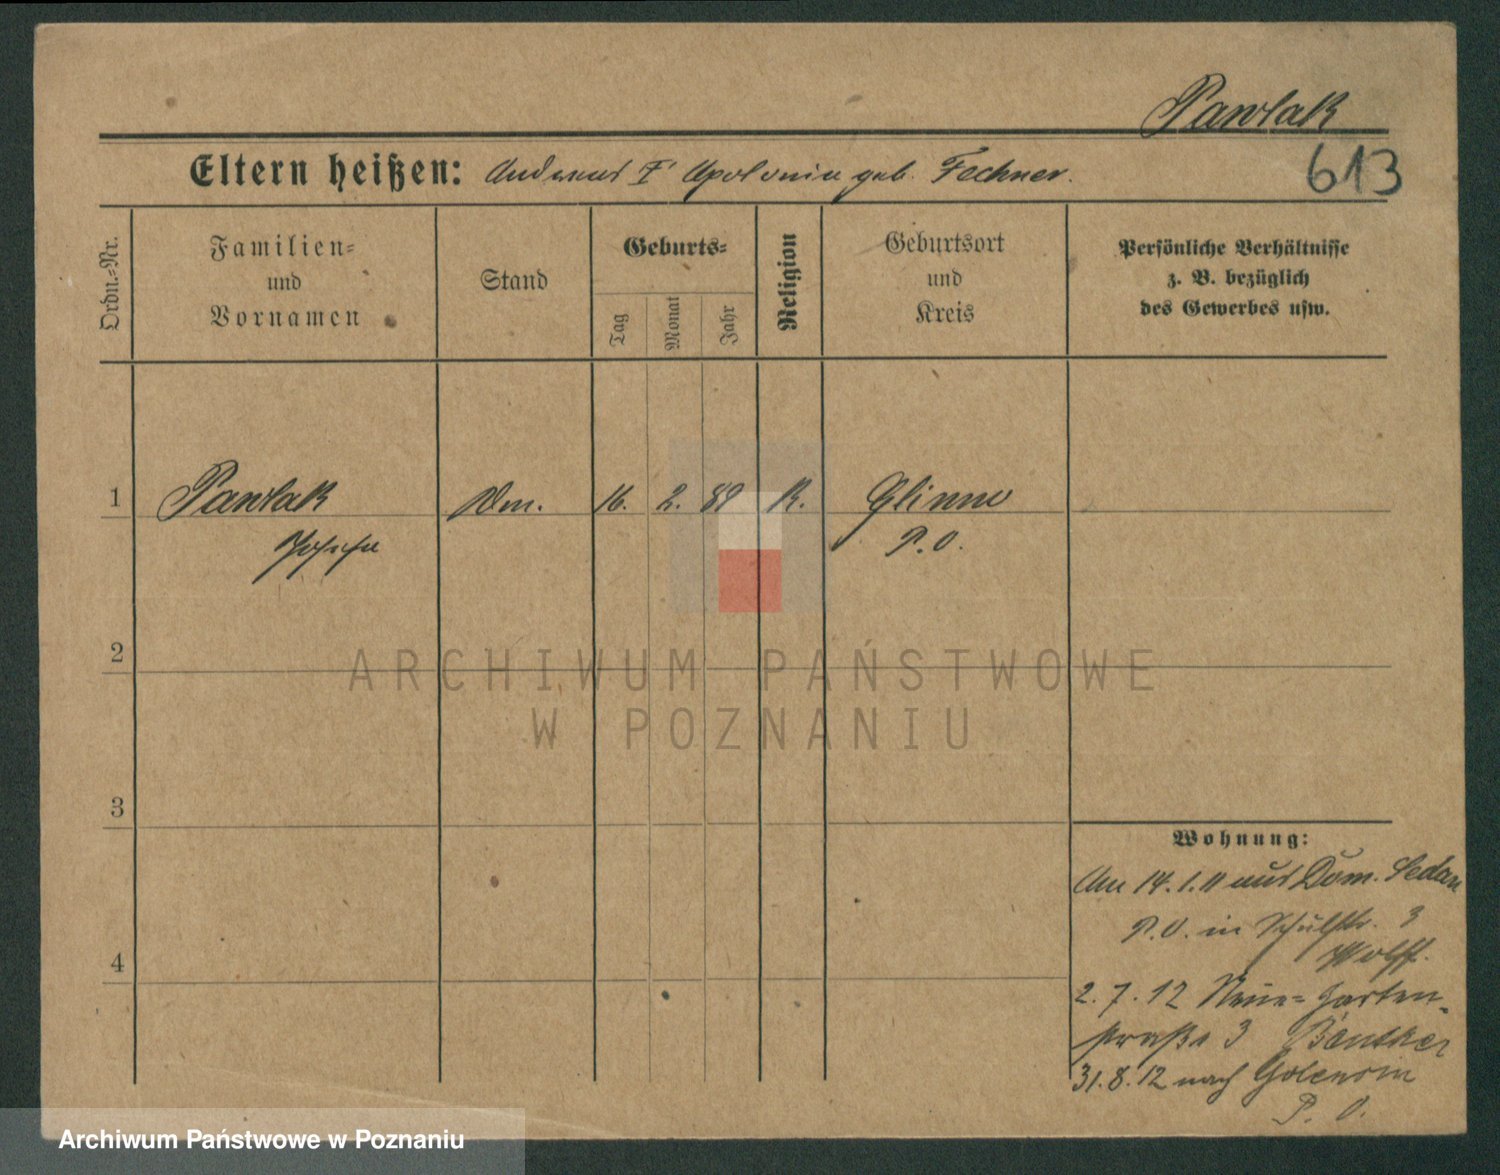 Pawlak
613
Eltern heißen: Andreas & Apolonia geb. Fechner.
Ordn.=Nr.
Familien=
und
Vornamen
Stand
Geburts=
Tag
Monat
Jahr
Religion
Geburtsort
und
Kreis
Persönliche Verhältnisse
z. B. bezüglich
des Gewerbes usw.
1 Pawlak 16. 2. 89 K. Glinno
P.O.
2
3
4
Wohnung:
Am 14.1.11 aus Dom. Sedan
P.O. in Schulstr. 3
Wolff.
2.7.12 Neue=Garten-
straße 3
31.8.12 nach Golencin
P.O.
ARCHIWUM PAŃSTWOWE
W POZNANIU
Archiwum Państwowe w Poznaniu